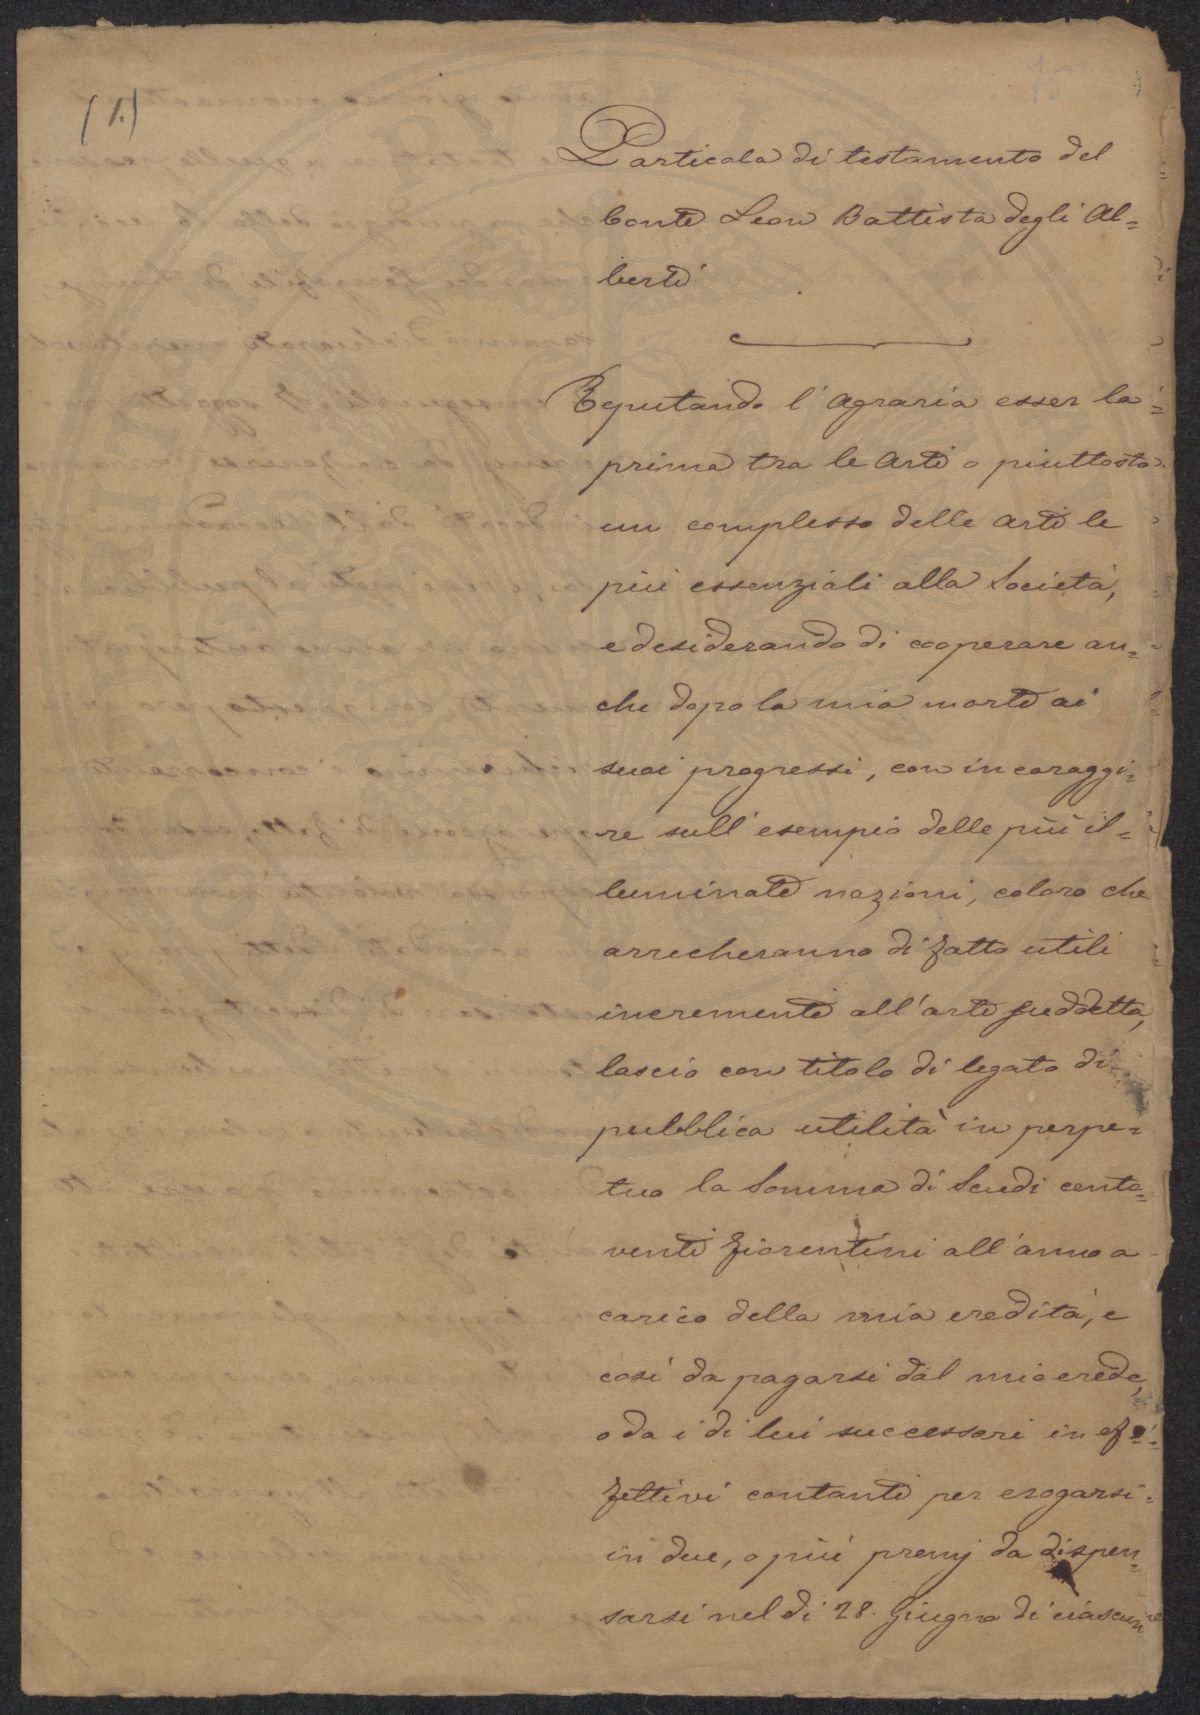 (1.)
15
Particola di testamento del
Conte Leon Battista degli Al=
berti
Reputando l'Agraria esser la
prima tra le Arti o piuttosto
un complesso delle arti le
più essenziali alla Società,
e desiderando di cooperare an=
che dopo la mia morte ai
suoi progressi, con incoraggi=
re sull'esempio delle più il=
luminate nazioni, coloro che
arrecheranno di fatto utili
incrementi all'arte suddetta,
lascio con titolo di legato di
pubblica utilità in perpe=
tuo la Somma di Scudi cento=
venti fiorentini all'anno a
carico della mia eredità, e
così da pagarsi dal mio erede,
o da i di lui successori in ef=
fettivi contanti per erogarsi
in due, o più premj da dispen=
sarsi nel dì 28. Giugno di ciascun